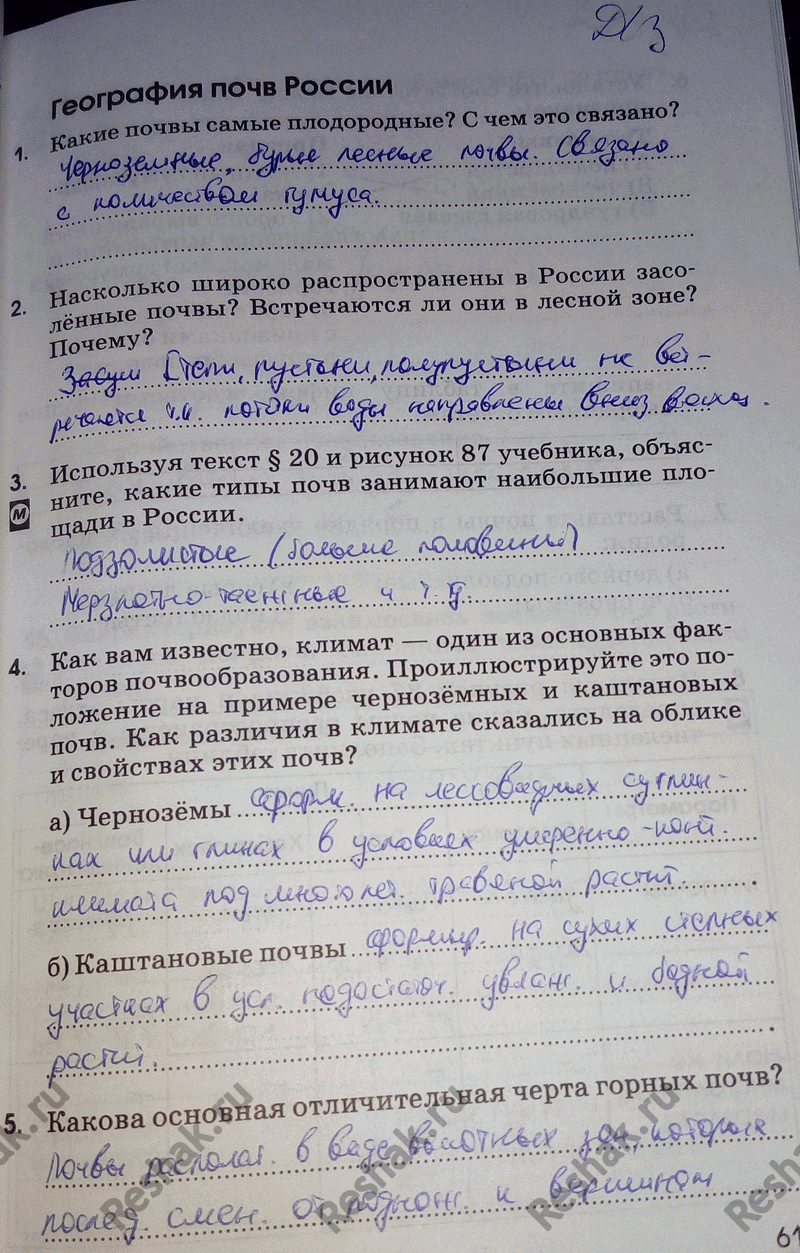 Д/з
География почв России
1. Какие почвы самые плодородные? С чем это связано?
Черноземные, бурые лесные почвы. Связано
с количеством гумуса.
2. Насколько широко распространены в России засо-
лённые почвы? Встречаются ли они в лесной зоне?
Почему?
Степи, пустыни, полупустыни не вст-
речаются т.к. потоки воды направлены вниз
3. Используя текст § 20 и рисунок 87 учебника, объяс-
М ните, какие типы почв занимают наибольшие пло-
щади в России.
Подзолистые (больше половины)
Мерзлотно-таёжные и т.д.
4. Как вам известно, климат — один из основных фак-
торов почвообразования. Проиллюстрируйте это по-
ложение на примере чернозёмных и каштановых
почв. Как различия в климате сказались на облике
и свойствах этих почв?
а) Чернозёмы форм. на лессовидных суглин-
ках или глинах в условиях умеренно-конт.
климата под многолет. травяной растит.
б) Каштановые почвы формир. на сухих степных
участках в усл. недостаточ. увлаж. и бедной
растит.
5. Какова основная отличительная черта горных почв?
Почвы располаг. в виде высотных зон, которые
послед. смен. от поднож. к вершинам
61
Reshak.ru
Reshak.ru
Reshak.ru